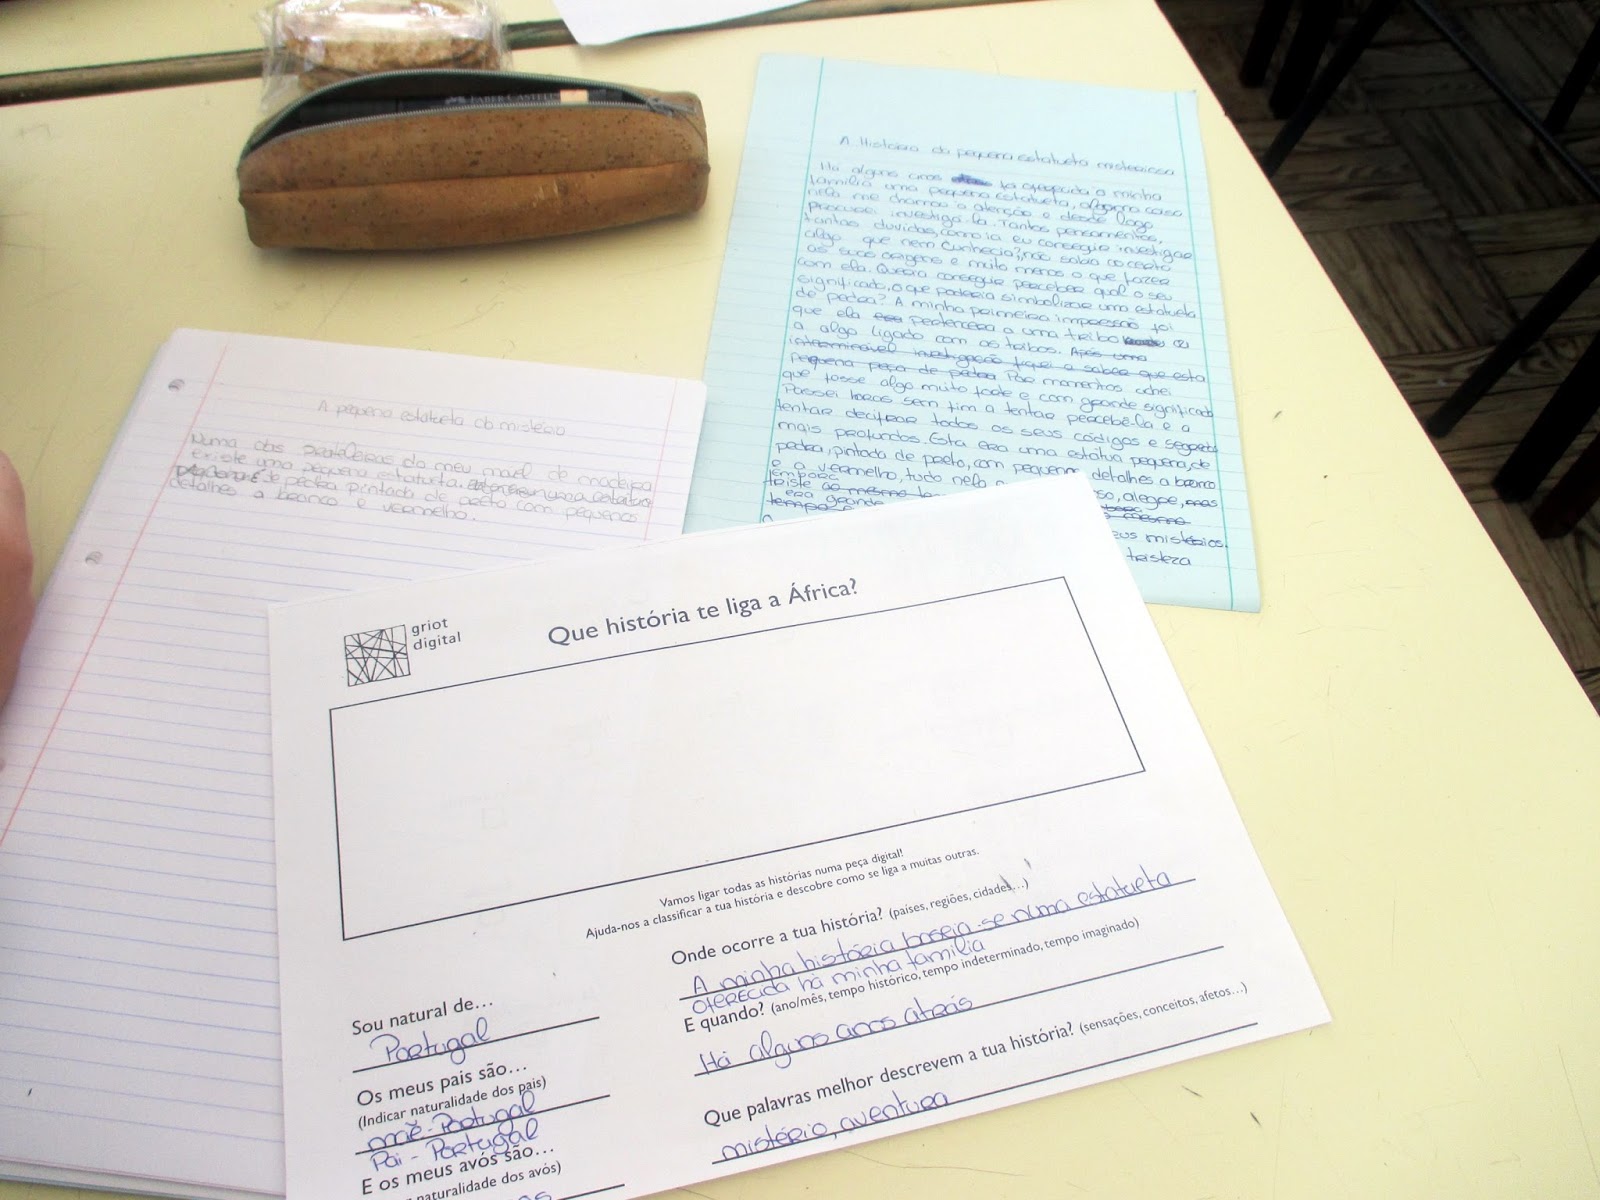 FABER-CASTELL
A História da pequena estatueta misteriosa
Há alguns anos foi oferecida a minha
família uma pequena estatueta, alguma coisa
nela me chamou a atenção e desde logo
procurei investigá-la. Tantos pensamentos,
tantas duvidas, como ia eu conseguir investigar
algo que nem conhecia?, não sabia ao certo
as suas origens e muito menos o que fazer
com ela. Queria conseguir perceber qual o seu
significado, o que poderia simbolizar uma estatueta
de pedra? A minha primeira impressão foi
que ela pertencera a uma tribo ou
a algo ligado com as tribos. Após uma
interminável investigação fiquei a saber que esta
pequena peça de pedra Por momentos achei
que fosse algo muito forte e com grande significado
Passei horas sem fim a tentar percebê-la e a
tentar decifrar todos os seus códigos e segredos
mais profundos. Esta era uma estátua pequena, de
pedra, pintada de preto, com pequenos detalhes a branco
e a vermelho, tudo nela
triste ao mesmo
era grande
tempo
alegre, mas
mesmo
seus mistérios.
tristeza
A pequena estatueta do mistério
Numa das prateleiras do meu movel de madeira
existe uma pequena estatueta.
de pedra pintada de preto com pequenos
detalhes a branco e vermelho.
griot
digital
Que história te liga a África?
Vamos ligar todas as histórias numa peça digital!
Ajuda-nos a classificar a tua história e descobre como se liga a muitas outras.
Onde ocorre a tua história? (países, regiões, cidades...)
A minha história baseia-se numa estatueta
oferecida há minha família
E quando? (ano/mês, tempo histórico, tempo indeterminado, tempo imaginado)
Há alguns anos atrás
Que palavras melhor descrevem a tua história? (sensações, conceitos, afetos...)
mistério, aventura
Sou natural de...
Portugal
Os meus pais são...
(Indicar naturalidade dos pais)
mãe - Portugal
Pai - Portugal
E os meus avós são...
naturalidade dos avós)